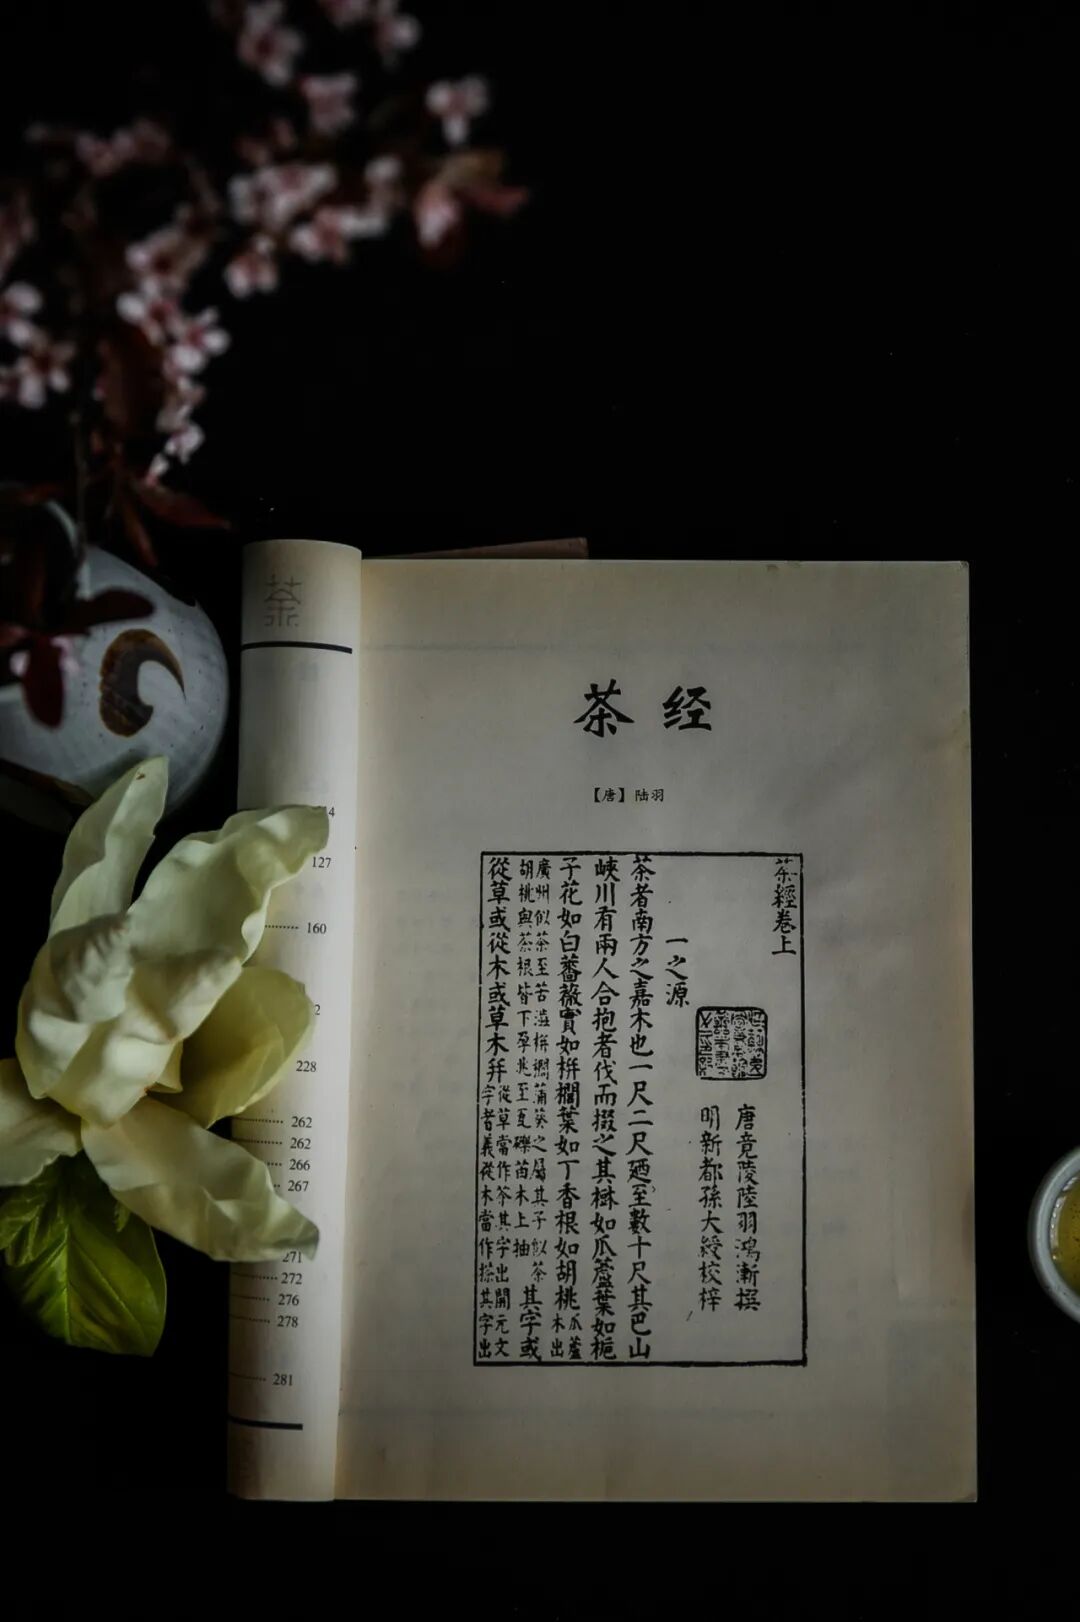 茶
127
160
228
262
262
266
267
271
272
276
278
281
茶经
【唐】陆羽
茶經卷上
唐竟陵陸羽鴻漸撰
明新都孫大綬校梓
一之源
茶者南方之嘉木也一尺二尺廼至數十尺其巴山
峽川有兩人合抱者伐而掇之其樹如瓜蘆葉如梔
子花如白薔薇實如栟櫚葉如丁香根如胡桃瓜蘆木出
廣州似茶至苦澁栟櫚蒲葵之屬其子似茶
胡桃與茶根皆下孕兆至瓦礫苗木上抽其字或
從草或從木或草木并從草當作茶其字出開元文
字者義從木當作㮛其字出